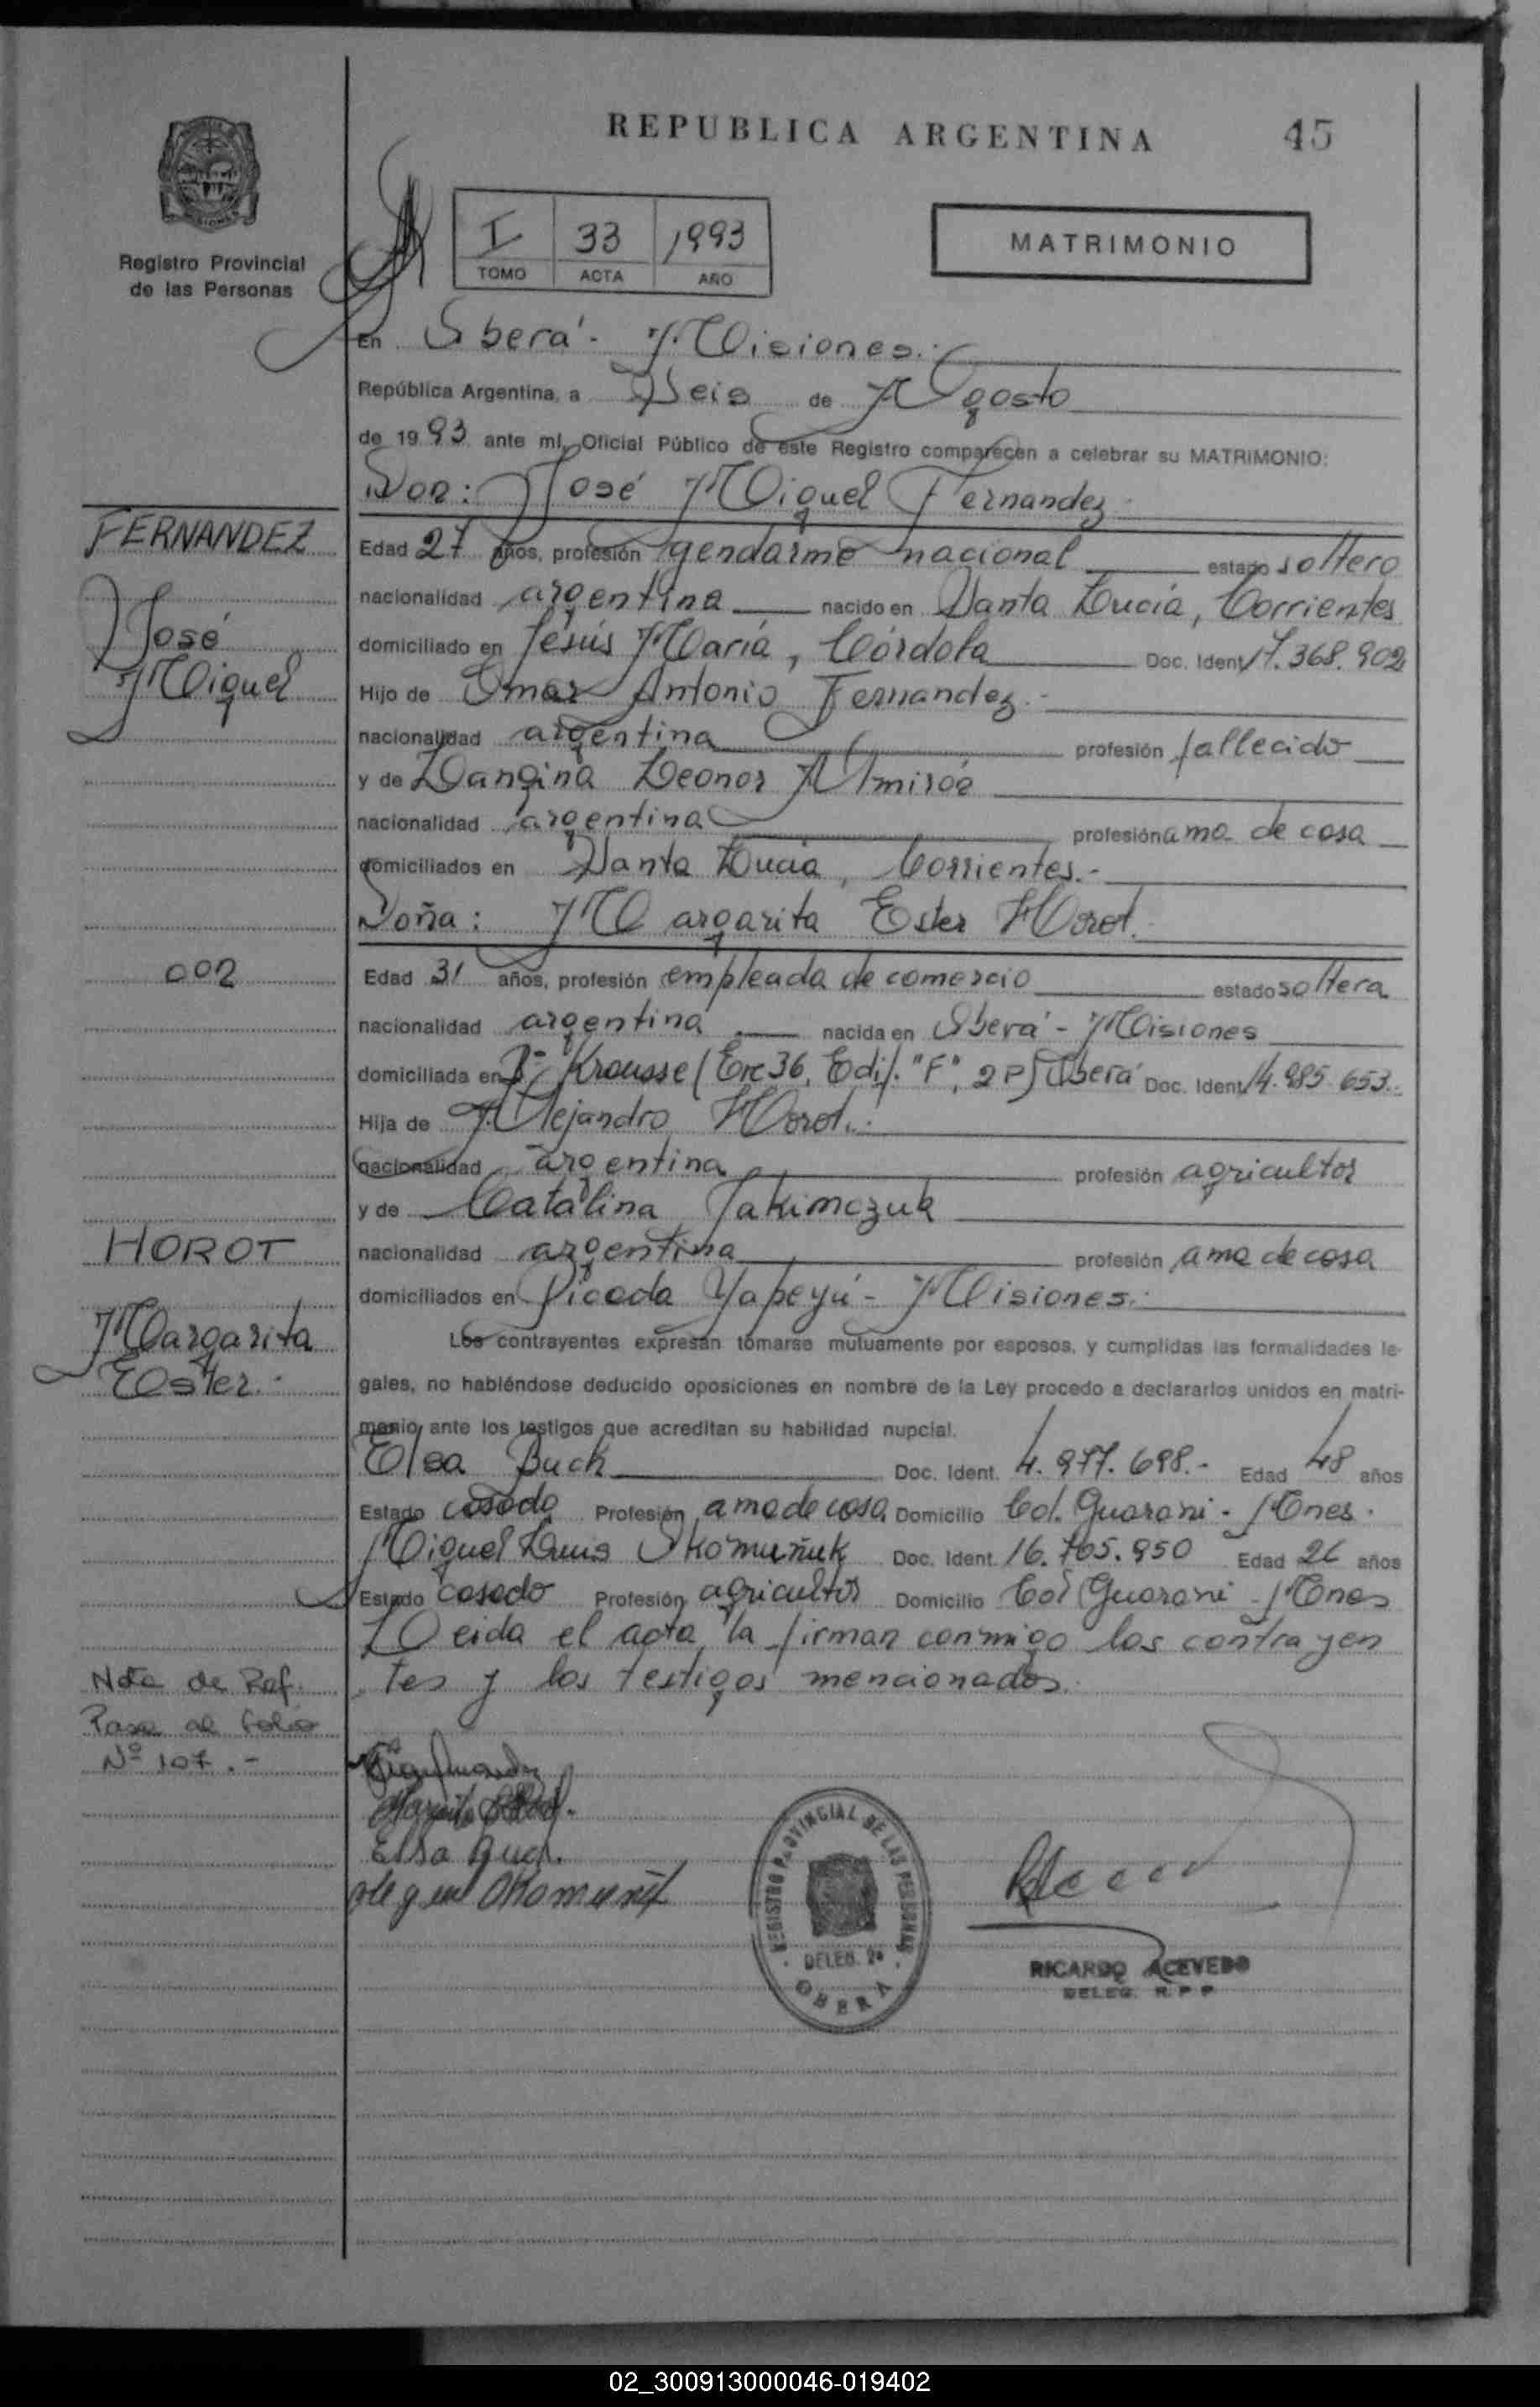 REPUBLICA ARGENTINA
45
Registro Provincial
de las Personas
I 33 1993
TOMO ACTA AÑO
MATRIMONIO
En Oberá - Misiones.-
República Argentina, a Seis de Agosto
de 1993 ante mí, Oficial Público de este Registro comparecen a celebrar su MATRIMONIO:
Don: José Miguel Fernandez
FERNANDEZ
José
Miguel
Edad 27 años, profesión gendarme nacional estado soltero
nacionalidad argentina nacido en Santa Lucía, Corrientes
domiciliado en Jesús María, Córdoba Doc. Ident. 17.368.902
Hijo de Omar Antonio Fernandez.-
nacionalidad argentina profesión fallecido
y de Leonor
nacionalidad argentina profesión ama de casa
domiciliados en Santa Lucía, Corrientes.-
Doña: Margarita Ester Horot.
002
Edad 31 años, profesión empleada de comercio estado soltera
nacionalidad argentina nacida en Oberá - Misiones
domiciliada en Krausse (Erc 36, Edif. "F", 2P) Oberá Doc. Ident. 14.985.653.
Hija de Alejandro Horot.-
nacionalidad argentina profesión agricultor
y de Catalina Jakimczuk
nacionalidad argentina profesión ama de casa
domiciliados en Picada Yapeyú - Misiones.-
HOROT
Margarita
Ester.-
Los contrayentes expresan tomarse mutuamente por esposos, y cumplidas las formalidades le-
gales, no habiéndose deducido oposiciones en nombre de la Ley procedo a declararlos unidos en matri-
monio ante los testigos que acreditan su habilidad nupcial.
Elsa Buch Doc. Ident. 4.977.698.- Edad 48 años
Estado casada Profesión ama de casa Domicilio Col. Guaraní - Mnes.
Miguel Luis Okomuñuk Doc. Ident. 16.765.950 Edad 26 años
Estado casado Profesión agricultor Domicilio Col Guaraní - Mnes
Leida el acta la firman conmigo los contrayen
tes y los testigos mencionados.
Nota de Ref.
Pasa al folio
Nº 107.-
Elsa Buch.
REGISTRO PROVINCIAL DE LAS PERSONAS
DELEG. 2ª
OBERA
RICARDO ACEVEDO
DELEG. R.P.P
02_300913000046-019402